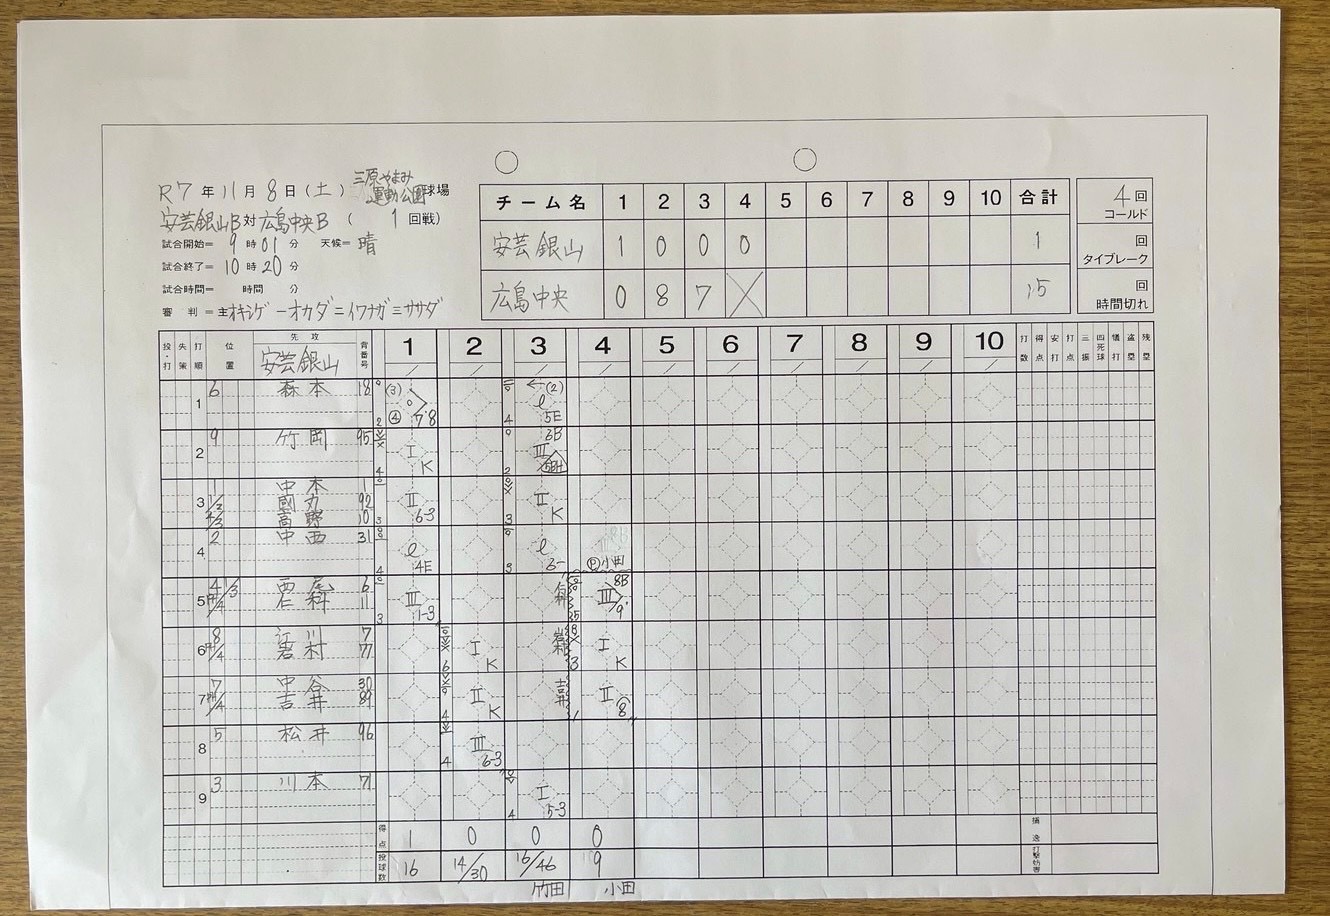 R7年11月8日(土) 三原やまみ運動公園球場
安芸銀山B対広島中央B(1回戦)
試合開始=9時01分 天候=晴
試合終了=10時20分
試合時間= 時間 分
審判=主オキシゲ一オカダ二イワナガ三ササダ
チーム名 1 2 3 4 5 6 7 8 9 10 合計
安芸銀山 1 0 0 0 1
広島中央 0 8 7 X 15
4回コールド
回タイブレーク
回時間切れ
投・打 失策 打順 位置 先攻 安芸銀山 背番号 1 2 3 4 5 6 7 8 9 10 打数 得点 安打 打点 三振 四死球 犠打 盗塁 残塁
1 6 森本 18 (3) ④ 7'8 ←(2) 5E
2 9 竹岡 95 I K 3B III
3 1 中本 1 II 6-3 II K
國丸 92
高野 10
4 2 中西 31 4E Ⓟ小田
5 4 西尾 6 III 1-3 III 8B 9'
11
6 8 江川 7 I K I K
岩村 77
7 7 中谷 30 II K II 8
吉井 89
8 5 松井 96 III 6-3
9 3 川本 71 I 5-3
得点 1 0 0 0 捕逸
投球数 16 14/30 16/46 9 打撃妨害
竹田 小田